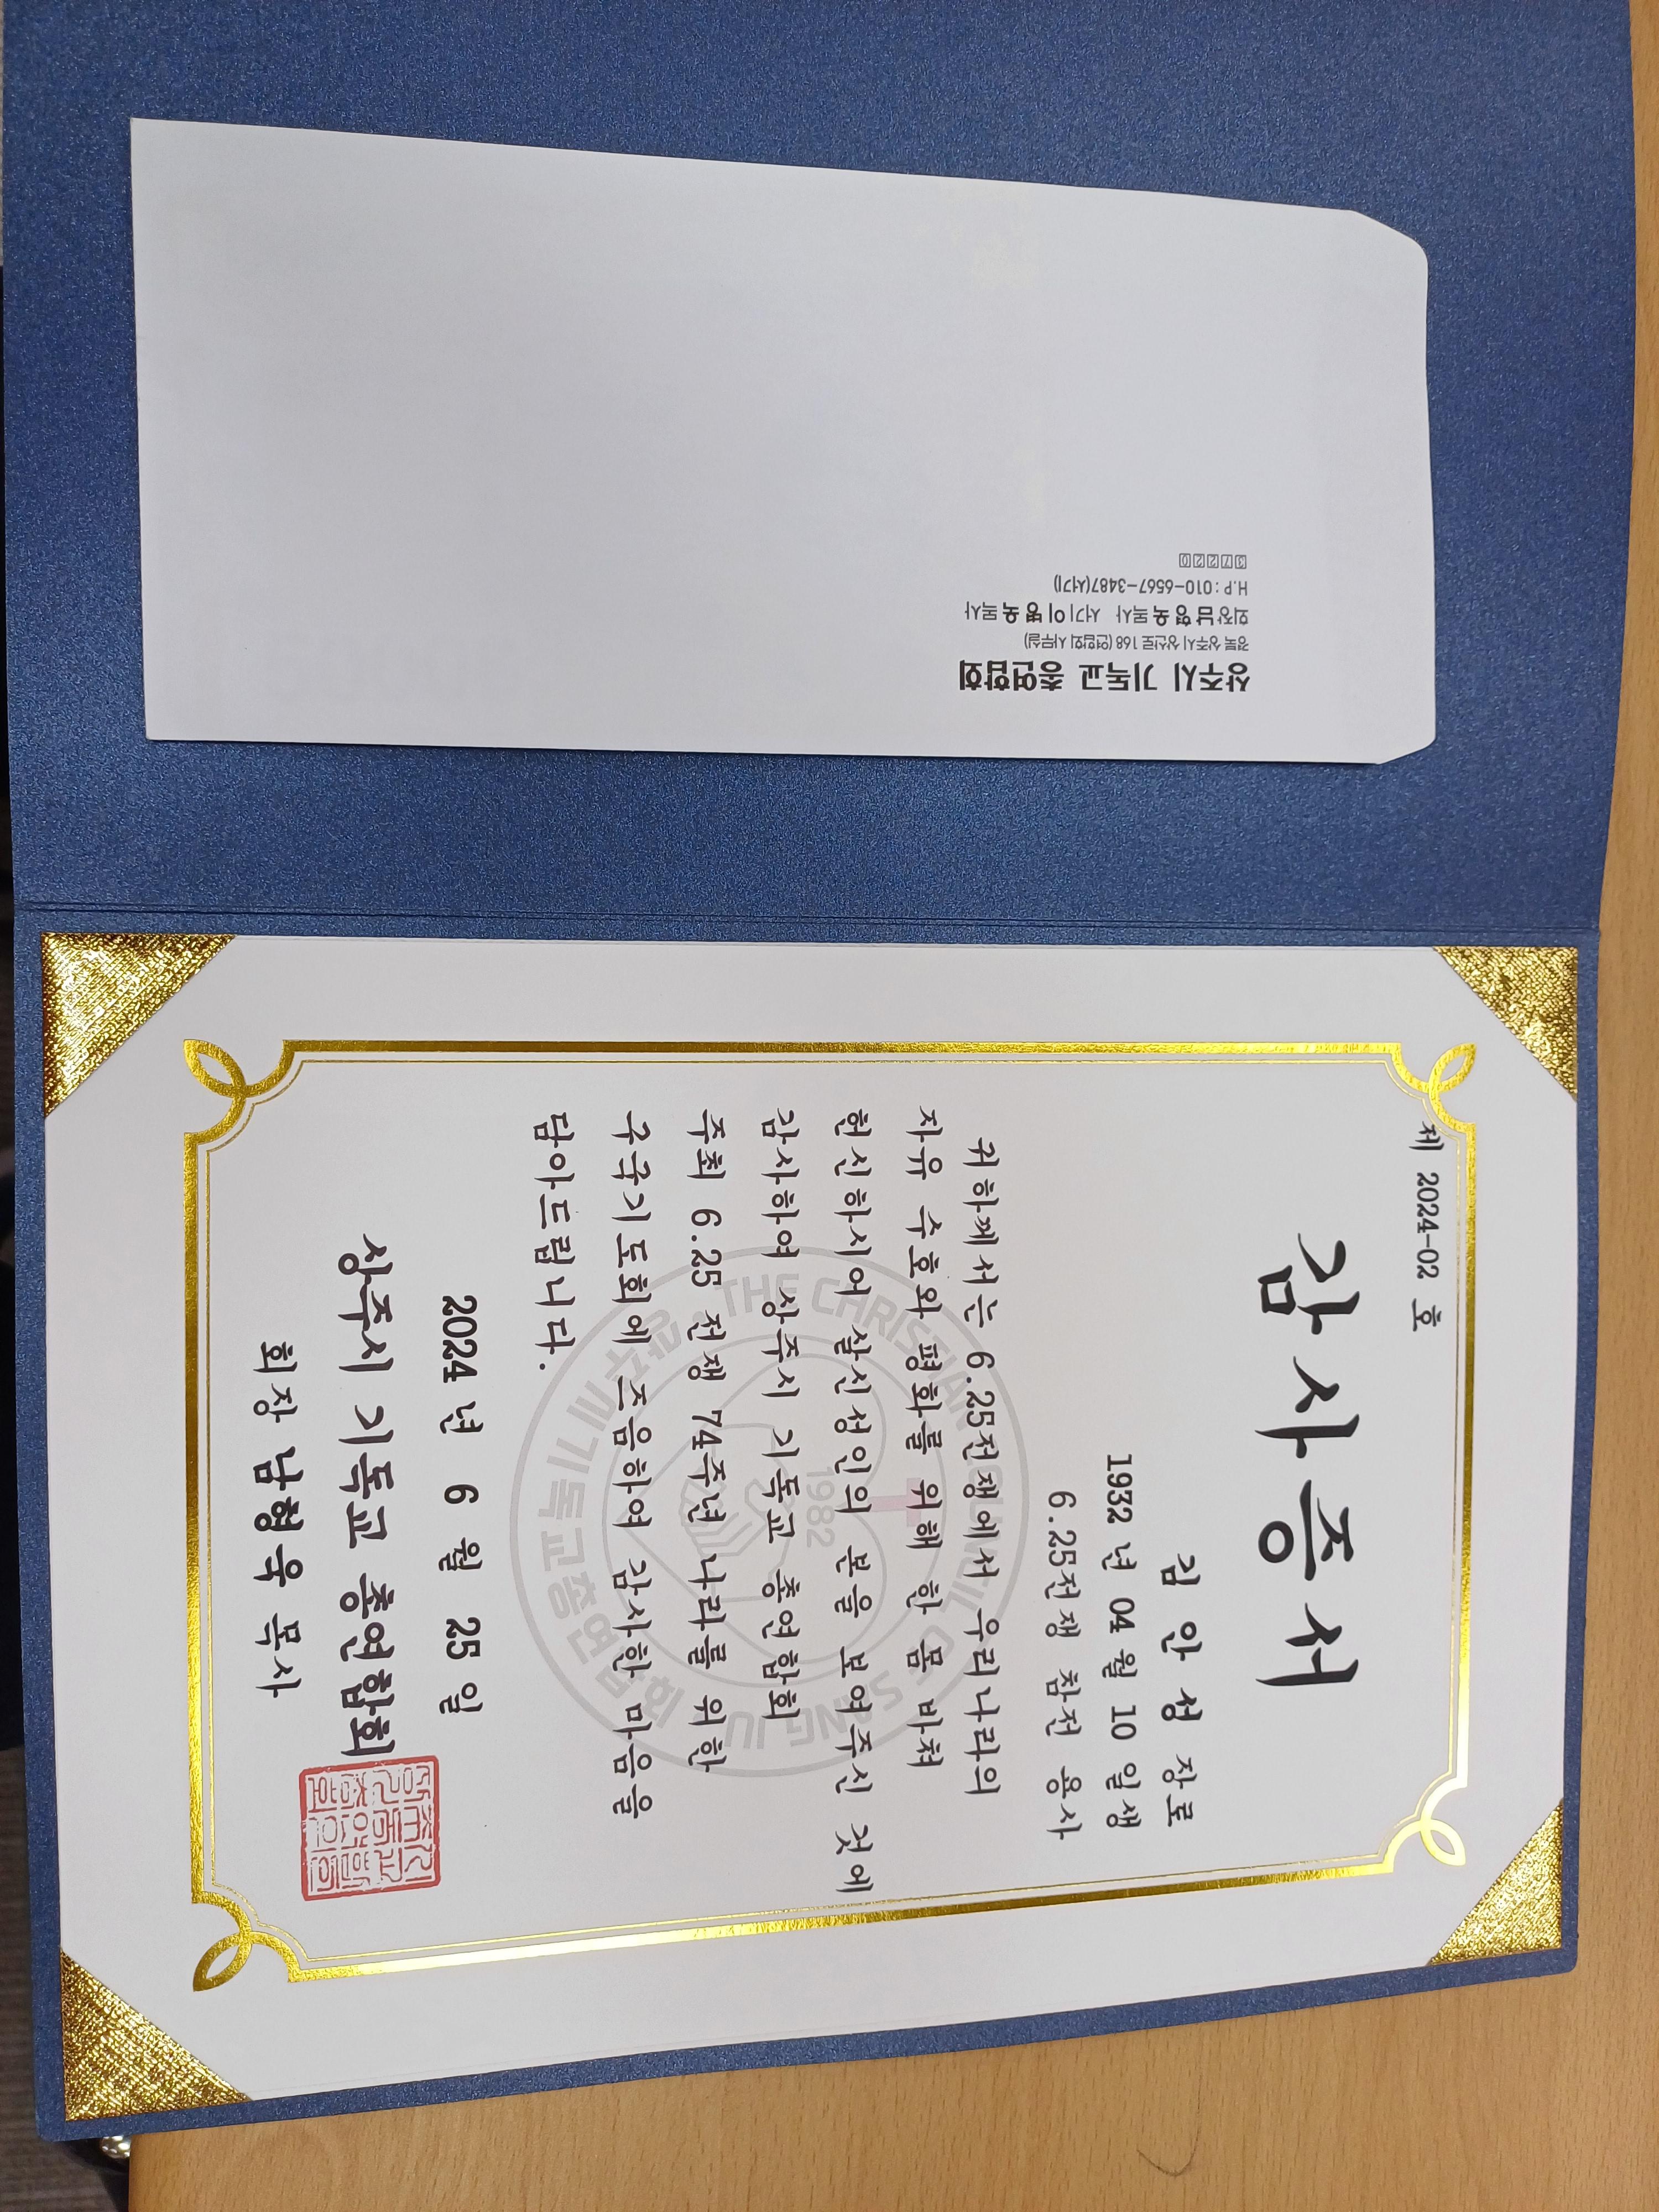 상주시 기독교 총연합회
경북 상주시 상산로 168 (연합회 사무실)
회장 남형욱 목사 서기 이병욱 목사
H.P : 010-6567-3487(서기)
37220
제 2024-02 호
감사증서
김 안 성 장로
1932 년 04 월 10 일생
6.25전쟁 참전 용사
귀하께서는 6.25전쟁에서 우리나라의
자유 수호와 평화를 위해 한 몸 바쳐
헌신하시어 살신성인의 본을 보여주신 것에
감사하여 상주시 기독교 총연합회
주최 6.25 전쟁 74주년 나라를 위한
구국기도회에 즈음하여 감사한 마음을
담아드립니다.
2024 년 6 월 25 일
상주시 기독교 총연합회
회장 남형욱 목사
상주시기독교총연합회
THE CHRISTIAN COUNCIL OF SANG JU
1982